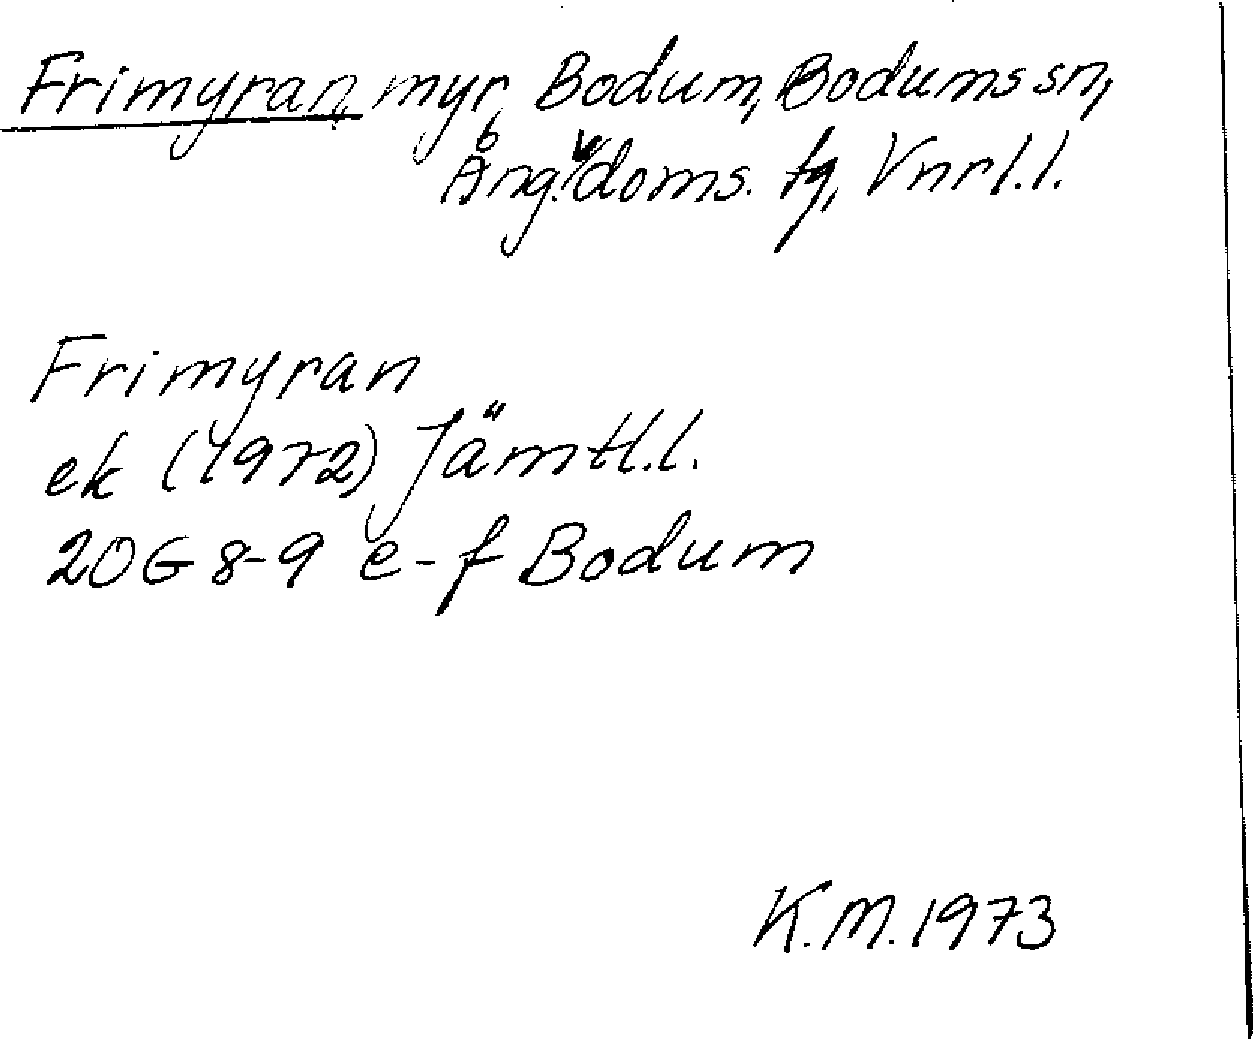 Frimyran, myr, Bodum, Bodums sn,
Ång. v. doms. tg, Vnrl.l.
Frimyran
ek (1972) Jämtl.l.
20G 8-9 e-f Bodum
K.M. 1973